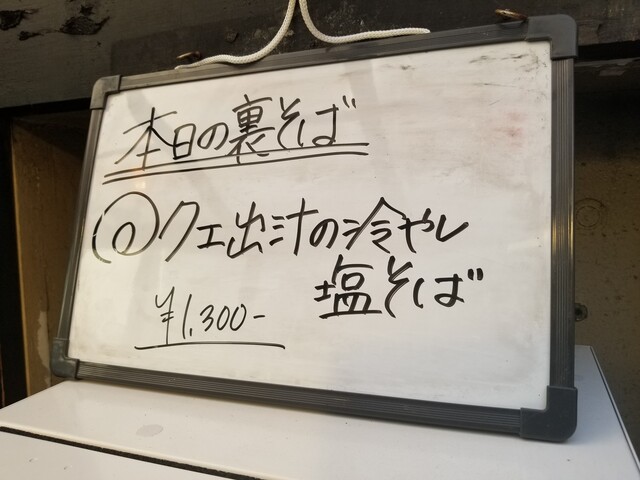 本日の裏そば
◎クエ出汁の冷やし
塩そば
¥1,300-